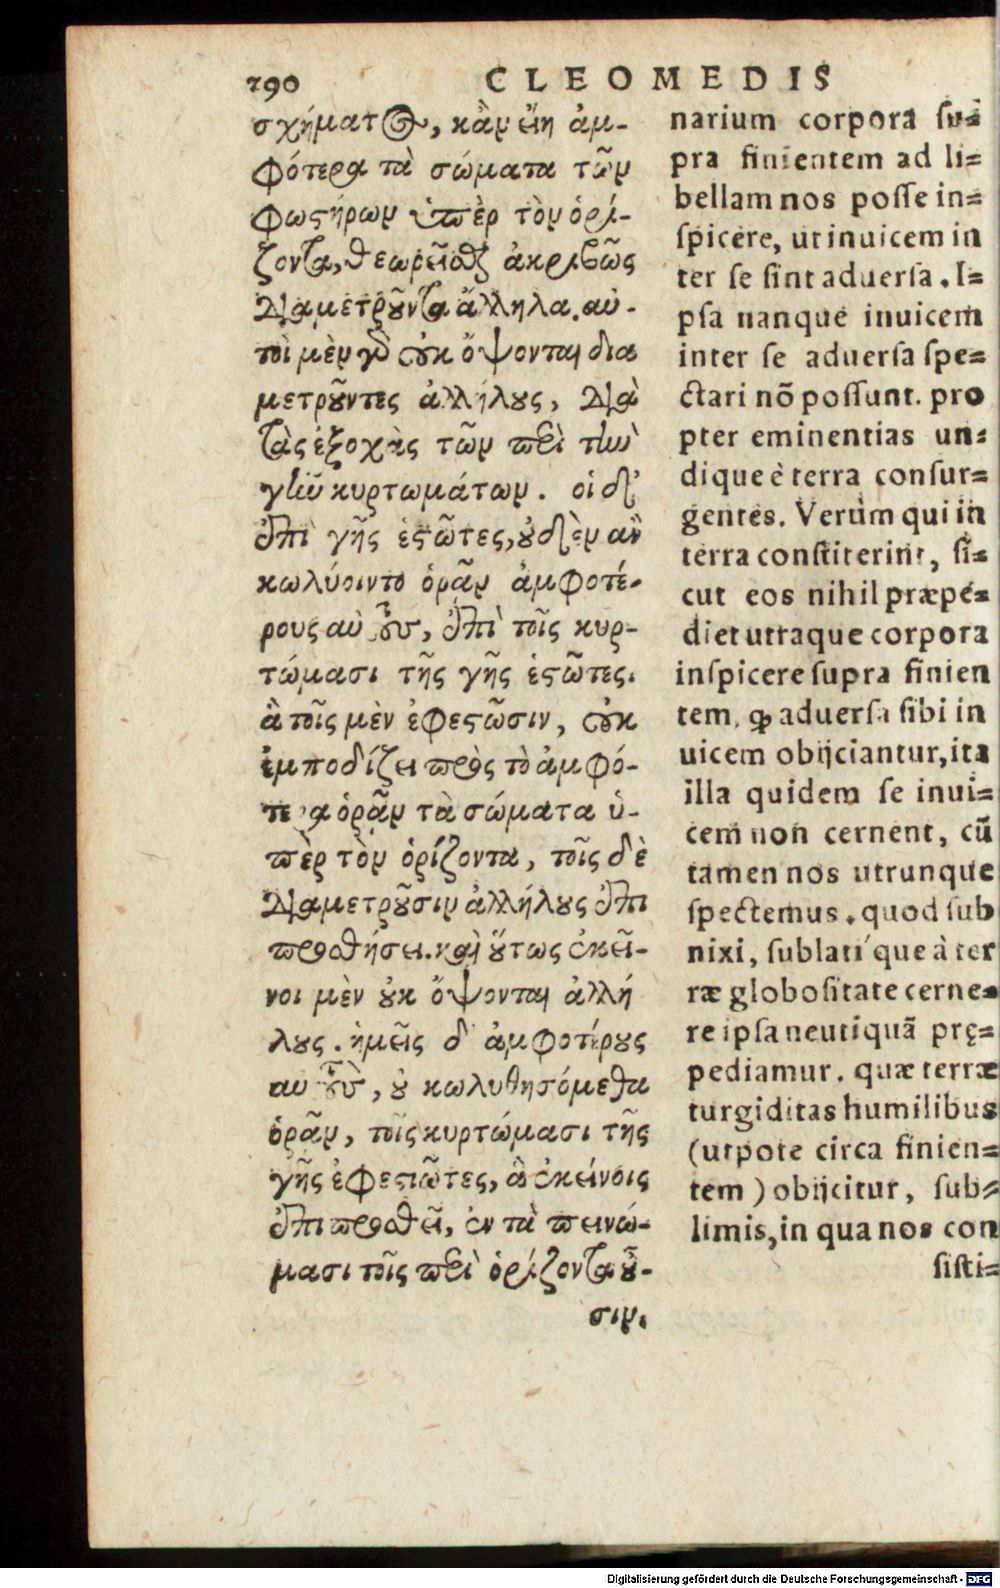 190
CLEOMEDIS
σχήματος, κἂν εἴη ἀμ-
φότερα τὰ σώματα τῶν
φωστήρων ὑπὲρ τὸν ὁρί-
ζοντα, θεωρεῖσθαι ἀκριβῶς
διαμετροῦντα ἄλληλα. αὐ-
τοὶ μὲν γὰρ οὐκ ὄψονται δια
μετροῦντες ἀλλήλους, διὰ
τὰς ἐξοχὰς τῶν περὶ τὴν
γῆν κυρτωμάτων. οἱ δ'
ἐπὶ γῆς ἑστῶτες, οὐδὲν ἂν
κωλύοιντο ὁρᾶν ἀμφοτέ-
ρους αὐτοὺς, ἐπὶ τοῖς κυρ-
τώμασι τῆς γῆς ἑστῶτες.
ἃ τοῖς μὲν ἐφεστῶσιν, οὐκ
ἐμποδίζει πρὸς τὸ ἀμφό-
τερα ὁρᾶν τὰ σώματα ὑ-
πὲρ τὸν ὁρίζοντα, τοῖς δὲ
διαμετροῦσιν ἀλλήλους ἐπι
προσθήσει. καὶ οὕτως ἐκεῖ-
νοι μὲν οὐκ ὄψονται ἀλλή
λους. ἡμεῖς δ' ἀμφοτέρους
αυτοὺς, οὐ κωλυθησόμεθα
ὁρᾶν, τοῖς κυρτώμασι τῆς
γῆς ἐφεστῶτες, ἃ ἐκείνοις
ἐπιπροσθεῖ, ἐν ταπεινώ-
μασι τοῖς περὶ ὁρίζοντα οὖ-
σιν.
narium corpora su-
pra finientem ad li=
bellam nos posse in=
spicere, ut inuicem in
ter se sint aduersa. I=
psa nanque inuicem
inter se aduersa spe=
ctari nō possunt. pro
pter eminentias un=
dique è terra consur=
gentes. Verùm qui in
terra constiterint, si=
cut eos nihil præpe=
diet utraque corpora
inspicere supra finien
tem, ꝙ aduersa sibi in
uicem obijciantur, ita
illa quidem se inui=
cem non cernent, cū
tamen nos utrunque
spectemus. quod sub
nixi, sublatique à ter
ræ globositate cerne=
re ipsa neutiquā pрę=
pediamur. quæ terræ
turgiditas humilibus
(utpote circa finien=
tem) obijcitur, sub=
limis, in qua nos con
sisti=
Digitalisierung gefördert durch die Deutsche Forschungsgemeinschaft - DFG